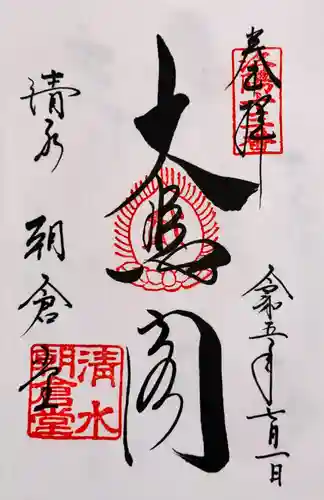 奉拝
令和五年七月一日
大悲閣
清水
朝倉堂
清水
朝倉堂